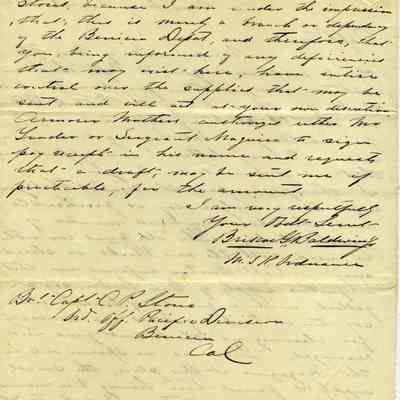 Stores, because I am under the impression
that, this is merely a branch or dependency
of the Benicia Depot, and therefore, that
you, being informed of any deficiencies
that may exist here, have entire
control over the supplies that may be
sent and will act at your own discretion
Armorer authorizes either Mr
or Sergeant Maguire to sign
pay receipt in his name and requests
that a draft, may be sent me if
practicable, for the amount.
I am very respectfully
Your Obt Servt
Briscoe G Baldwin
M.S.K. Ordnance
Bvt Capt C. P. Stone
Ord. Off. Pacific Division
Benicia
Cal